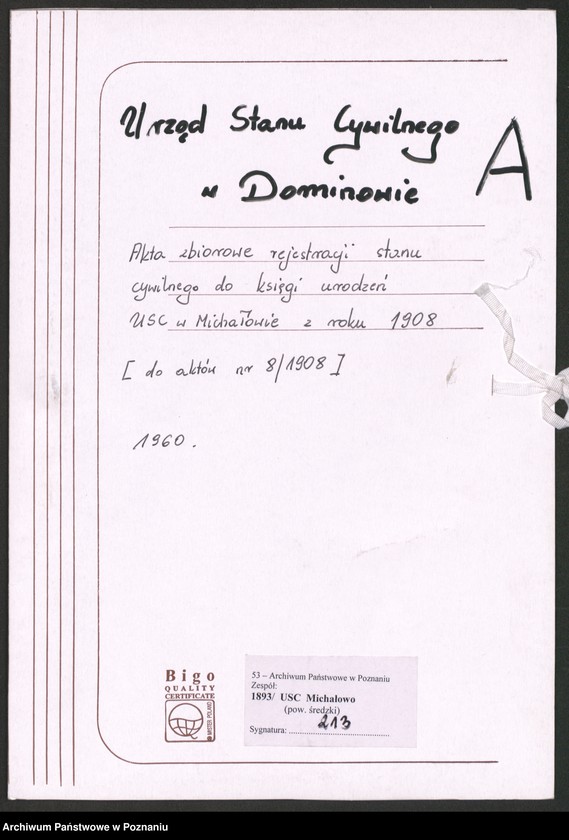 Urząd Stanu Cywilnego
w Dominowie
A
Akta zbiorowe rejestracji stanu
cywilnego do księgi urodzeń
USC w Michałowie z roku 1908
[ do aktów nr 8/1908 ]
1960.
Bigo
QUALITY
CERTIFICATE
MISTER POLAND
53 – Archiwum Państwowe w Poznaniu
Zespół:
1893/ USC Michałowo
(pow. średzki)
Sygnatura: 213
Archiwum Państwowe w Poznaniu